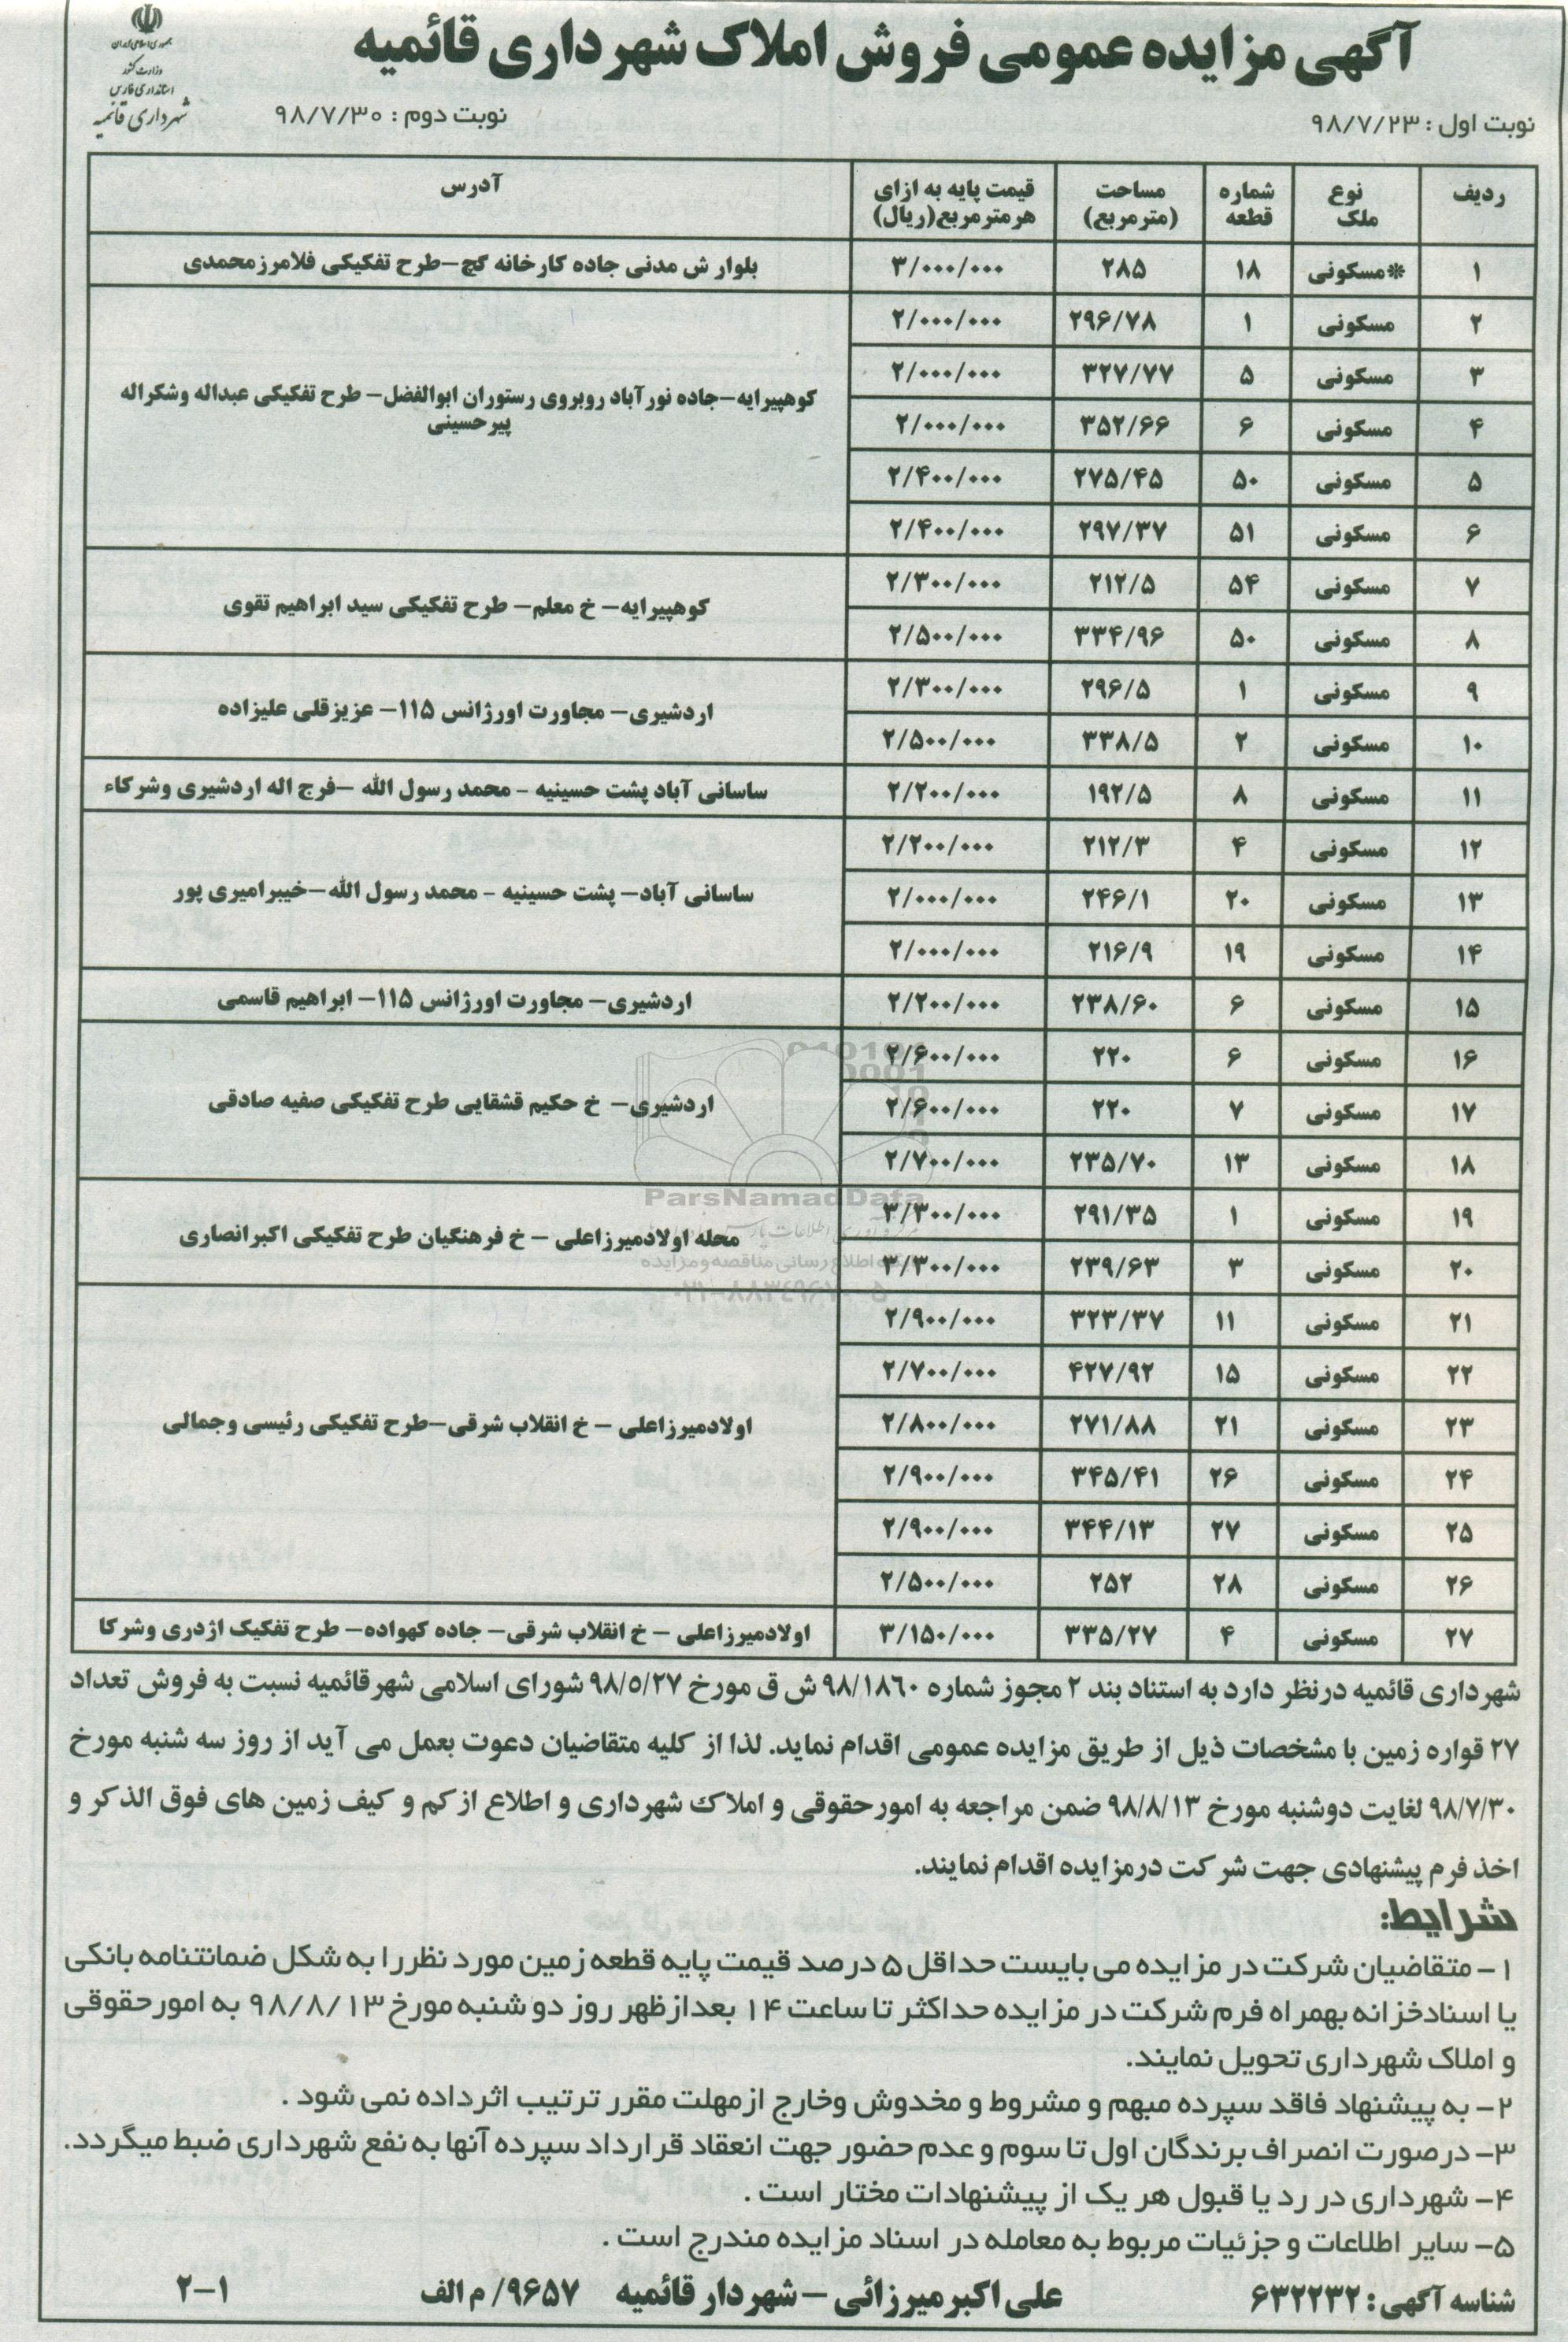 جمهوری اسلامی ایران
وزارت کشور
استانداری فارس
شهرداری قائمیه
آگهی مزایده عمومی فروش املاک شهرداری قائمیه
نوبت اول : ۹۸/۷/۲۳
نوبت دوم : ۹۸/۷/۳۰
ردیف نوع ملک شماره قطعه مساحت (مترمربع) قیمت پایه به ازای هرمترمربع(ریال) آدرس
۱ *مسکونی ۱۸ ۲۸۵ ۳/۰۰۰/۰۰۰ بلوار ش مدنی جاده کارخانه گچ–طرح تفکیکی فلامرزمحمدی
۲ مسکونی ۱ ۲۹۶/۷۸ ۲/۰۰۰/۰۰۰ کوهپیرایه–جاده نورآباد روبروی رستوران ابوالفضل– طرح تفکیکی عبداله وشکراله پیرحسینی
۳ مسکونی ۵ ۳۲۷/۷۷ ۲/۰۰۰/۰۰۰
۴ مسکونی ۶ ۳۵۲/۶۶ ۲/۰۰۰/۰۰۰
۵ مسکونی ۵۰ ۲۷۵/۴۵ ۲/۴۰۰/۰۰۰
۶ مسکونی ۵۱ ۲۹۷/۳۷ ۲/۴۰۰/۰۰۰
۷ مسکونی ۵۴ ۲۱۲/۵ ۲/۳۰۰/۰۰۰ کوهپیرایه– خ معلم– طرح تفکیکی سید ابراهیم تقوی
۸ مسکونی ۵۰ ۳۳۴/۹۶ ۲/۵۰۰/۰۰۰
۹ مسکونی ۱ ۲۹۶/۵ ۲/۳۰۰/۰۰۰ اردشیری– مجاورت اورژانس ۱۱۵– عزیزقلی علیزاده
۱۰ مسکونی ۲ ۳۳۸/۵ ۲/۵۰۰/۰۰۰
۱۱ مسکونی ۸ ۱۹۲/۵ ۲/۲۰۰/۰۰۰ ساسانی آباد پشت حسینیه - محمد رسول الله –فرج اله اردشیری وشرکاء
۱۲ مسکونی ۴ ۲۱۲/۳ ۲/۲۰۰/۰۰۰ ساسانی آباد– پشت حسینیه - محمد رسول الله–خیبرامیری پور
۱۳ مسکونی ۲۰ ۲۴۶/۱ ۲/۰۰۰/۰۰۰
۱۴ مسکونی ۱۹ ۲۱۶/۹ ۲/۰۰۰/۰۰۰
۱۵ مسکونی ۶ ۲۳۸/۶۰ ۲/۲۰۰/۰۰۰ اردشیری– مجاورت اورژانس ۱۱۵– ابراهیم قاسمی
۱۶ مسکونی ۶ ۲۲۰ ۲/۶۰۰/۰۰۰ اردشیری– خ حکیم قشقایی طرح تفکیکی صفیه صادقی
۱۷ مسکونی ۷ ۲۲۰ ۲/۶۰۰/۰۰۰
۱۸ مسکونی ۱۳ ۲۳۵/۷۰ ۲/۷۰۰/۰۰۰
۱۹ مسکونی ۱ ۲۹۱/۳۵ ۳/۳۰۰/۰۰۰ محله اولادمیرزاعلی – خ فرهنگیان طرح تفکیکی اکبرانصاری
۲۰ مسکونی ۳ ۲۳۹/۶۳ ۳/۳۰۰/۰۰۰
۲۱ مسکونی ۱۱ ۳۲۳/۳۷ ۲/۹۰۰/۰۰۰ اولادمیرزاعلی – خ انقلاب شرقی–طرح تفکیکی رئیسی وجمالی
۲۲ مسکونی ۱۵ ۴۲۷/۹۲ ۲/۷۰۰/۰۰۰
۲۳ مسکونی ۲۱ ۲۷۱/۸۸ ۲/۸۰۰/۰۰۰
۲۴ مسکونی ۲۶ ۳۴۵/۴۱ ۲/۹۰۰/۰۰۰
۲۵ مسکونی ۲۷ ۳۴۴/۱۳ ۲/۹۰۰/۰۰۰
۲۶ مسکونی ۲۸ ۲۵۲ ۲/۵۰۰/۰۰۰
۲۷ مسکونی ۴ ۳۳۵/۲۷ ۳/۱۵۰/۰۰۰ اولادمیرزاعلی – خ انقلاب شرقی– جاده کهواده– طرح تفکیک اژدری وشرکا
ParsNamadData
شهرداری قائمیه درنظر دارد به استناد بند ۲ مجوز شماره ۹۸/۱۸۶۰ ش ق مورخ ۹۸/۵/۲۷ شورای اسلامی شهرقائمیه نسبت به فروش تعداد
۲۷ قواره زمین با مشخصات ذیل از طریق مزایده عمومی اقدام نماید. لذا از کلیه متقاضیان دعوت بعمل می آید از روز سه شنبه مورخ
۹۸/۷/۳۰ لغایت دوشنبه مورخ ۹۸/۸/۱۳ ضمن مراجعه به امورحقوقی و املاک شهرداری و اطلاع از کم و کیف زمین های فوق الذکر و
اخذ فرم پیشنهادی جهت شرکت درمزایده اقدام نمایند.
شرایط:
۱– متقاضیان شرکت در مزایده می بایست حداقل ۵ درصد قیمت پایه قطعه زمین مورد نظر را به شکل ضمانتنامه بانکی
یا اسنادخزانه بهمراه فرم شرکت در مزایده حداکثر تا ساعت ۱۴ بعدازظهر روز دوشنبه مورخ ۹۸/۸/۱۳ به امورحقوقی
و املاک شهرداری تحویل نمایند.
۲– به پیشنهاد فاقد سپرده مبهم و مشروط و مخدوش وخارج ازمهلت مقرر ترتیب اثرداده نمی شود .
۳– درصورت انصراف برندگان اول تا سوم و عدم حضور جهت انعقاد قرارداد سپرده آنها به نفع شهرداری ضبط میگردد.
۴– شهرداری در رد یا قبول هر یک از پیشنهادات مختار است .
۵– سایر اطلاعات و جزئیات مربوط به معامله در اسناد مزایده مندرج است .
شناسه آگهی : ۶۳۲۲۳۲ علی اکبرمیرزائی – شهردار قائمیه ۹۶۵۷/ م الف ۲–۱